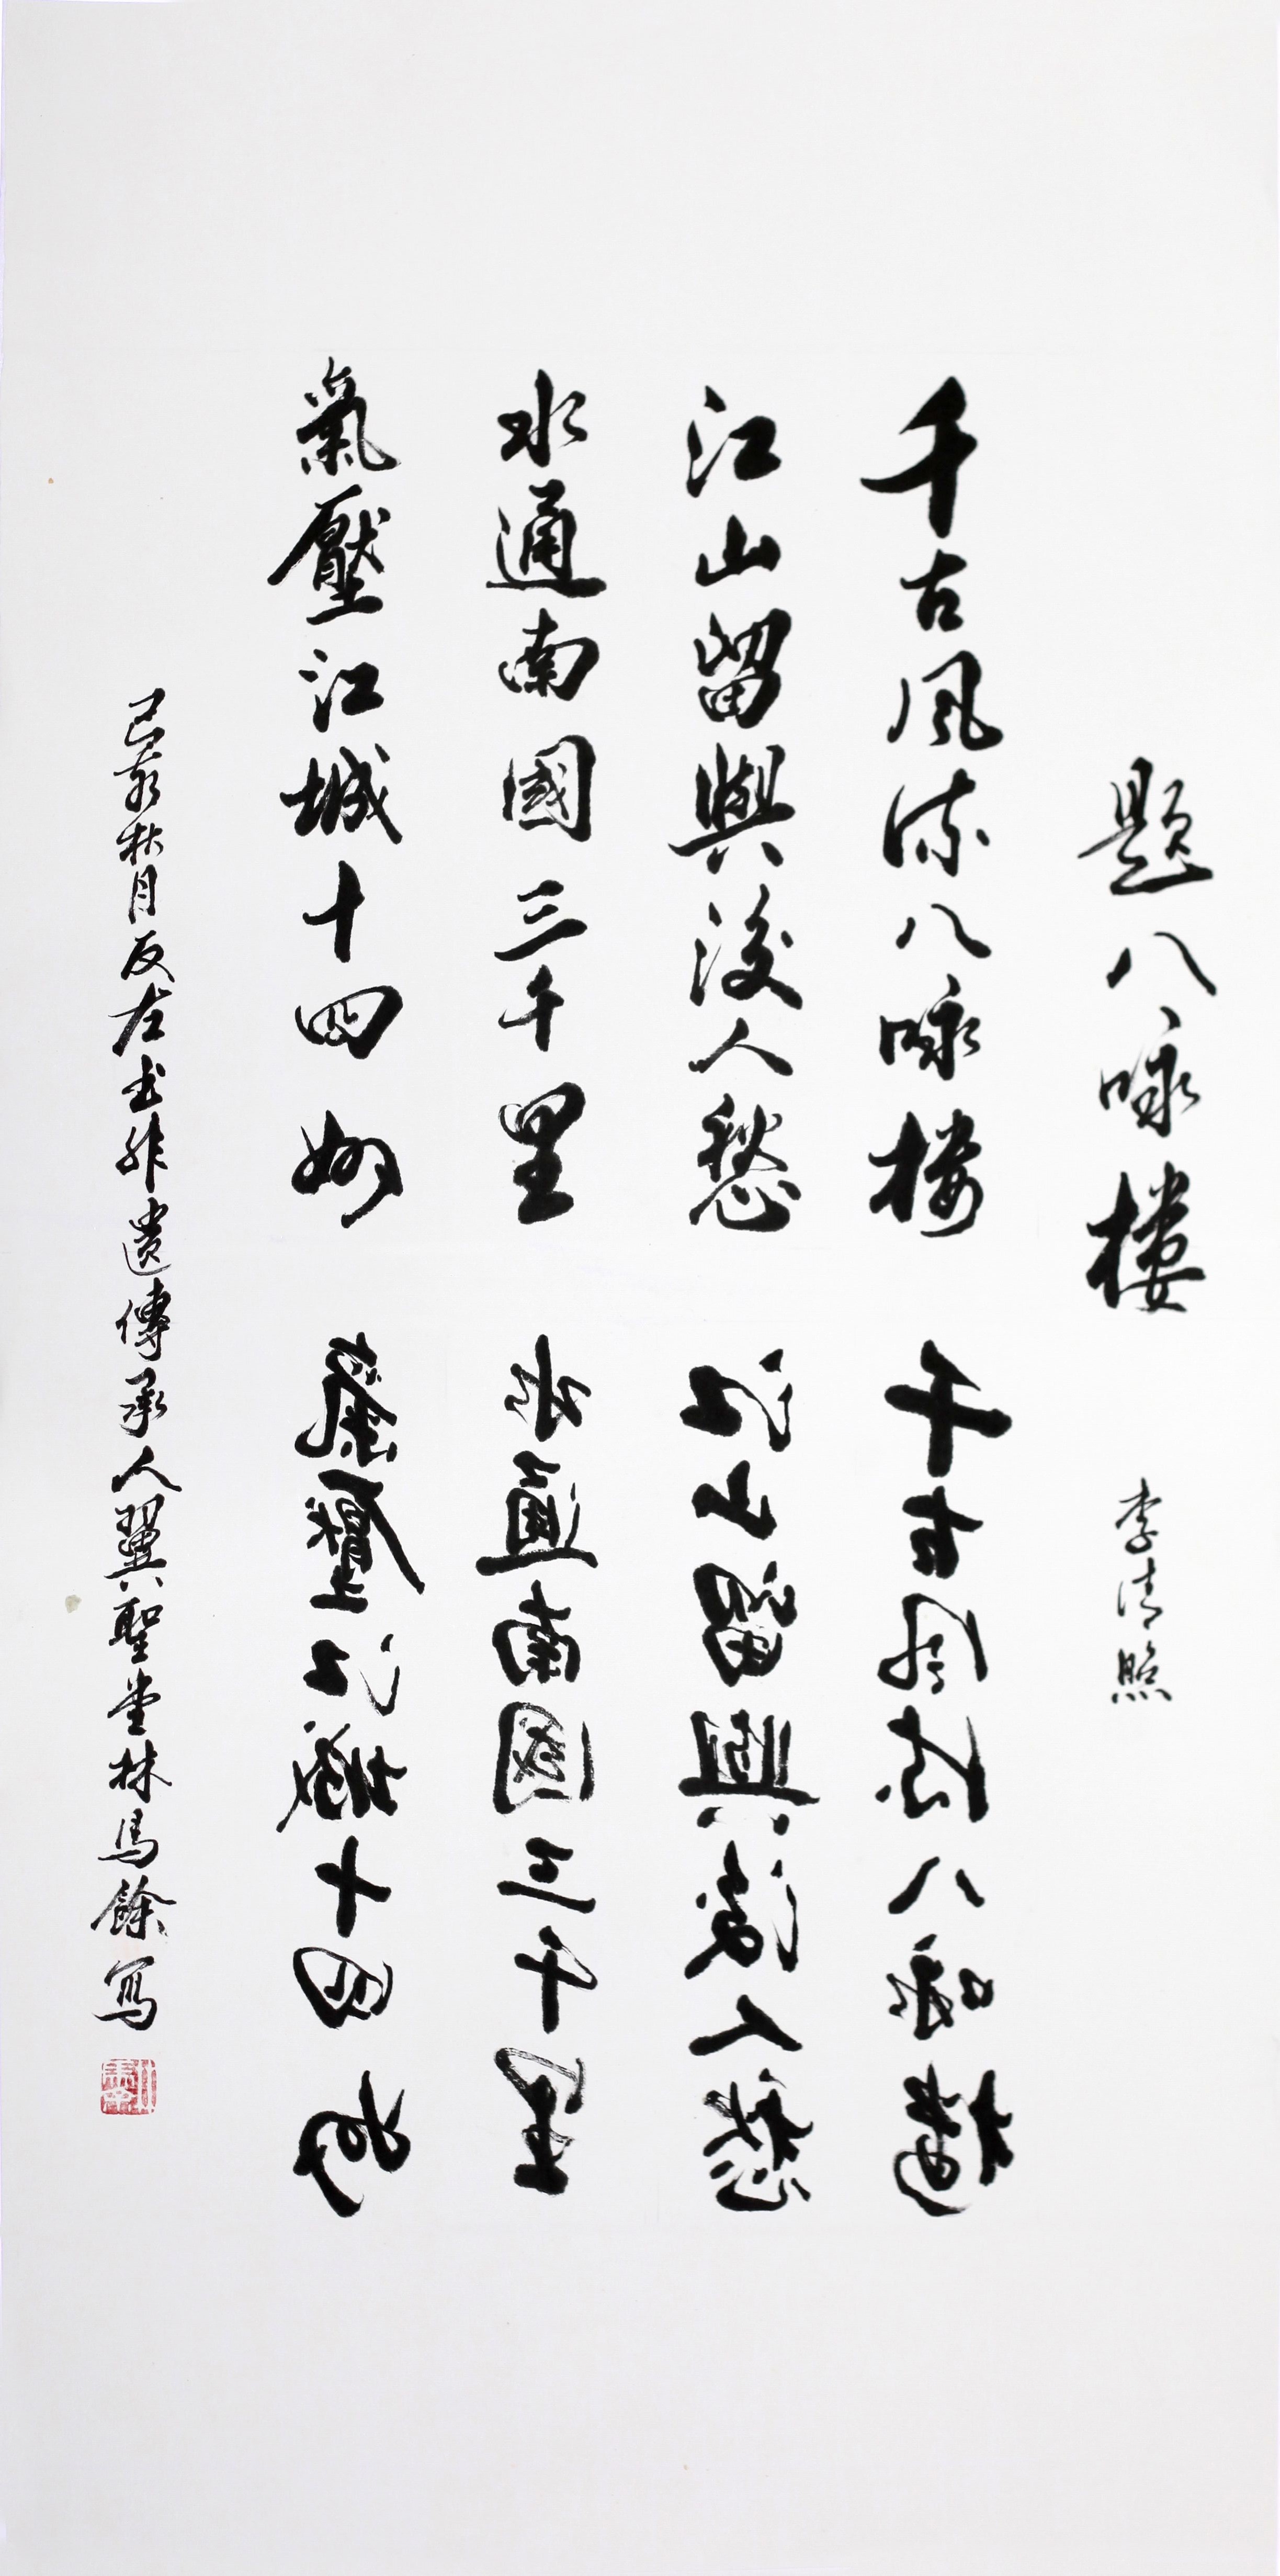 题八咏楼 李清照
千古風流八咏楼
江山留與後人愁
水通南國三千里
氣壓江城十四州
千古風流八咏楼
江山留與後人愁
水通南國三千里
氣壓江城十四州
己亥秋月反左书非遗傳承人翼聖堂林馬餘写